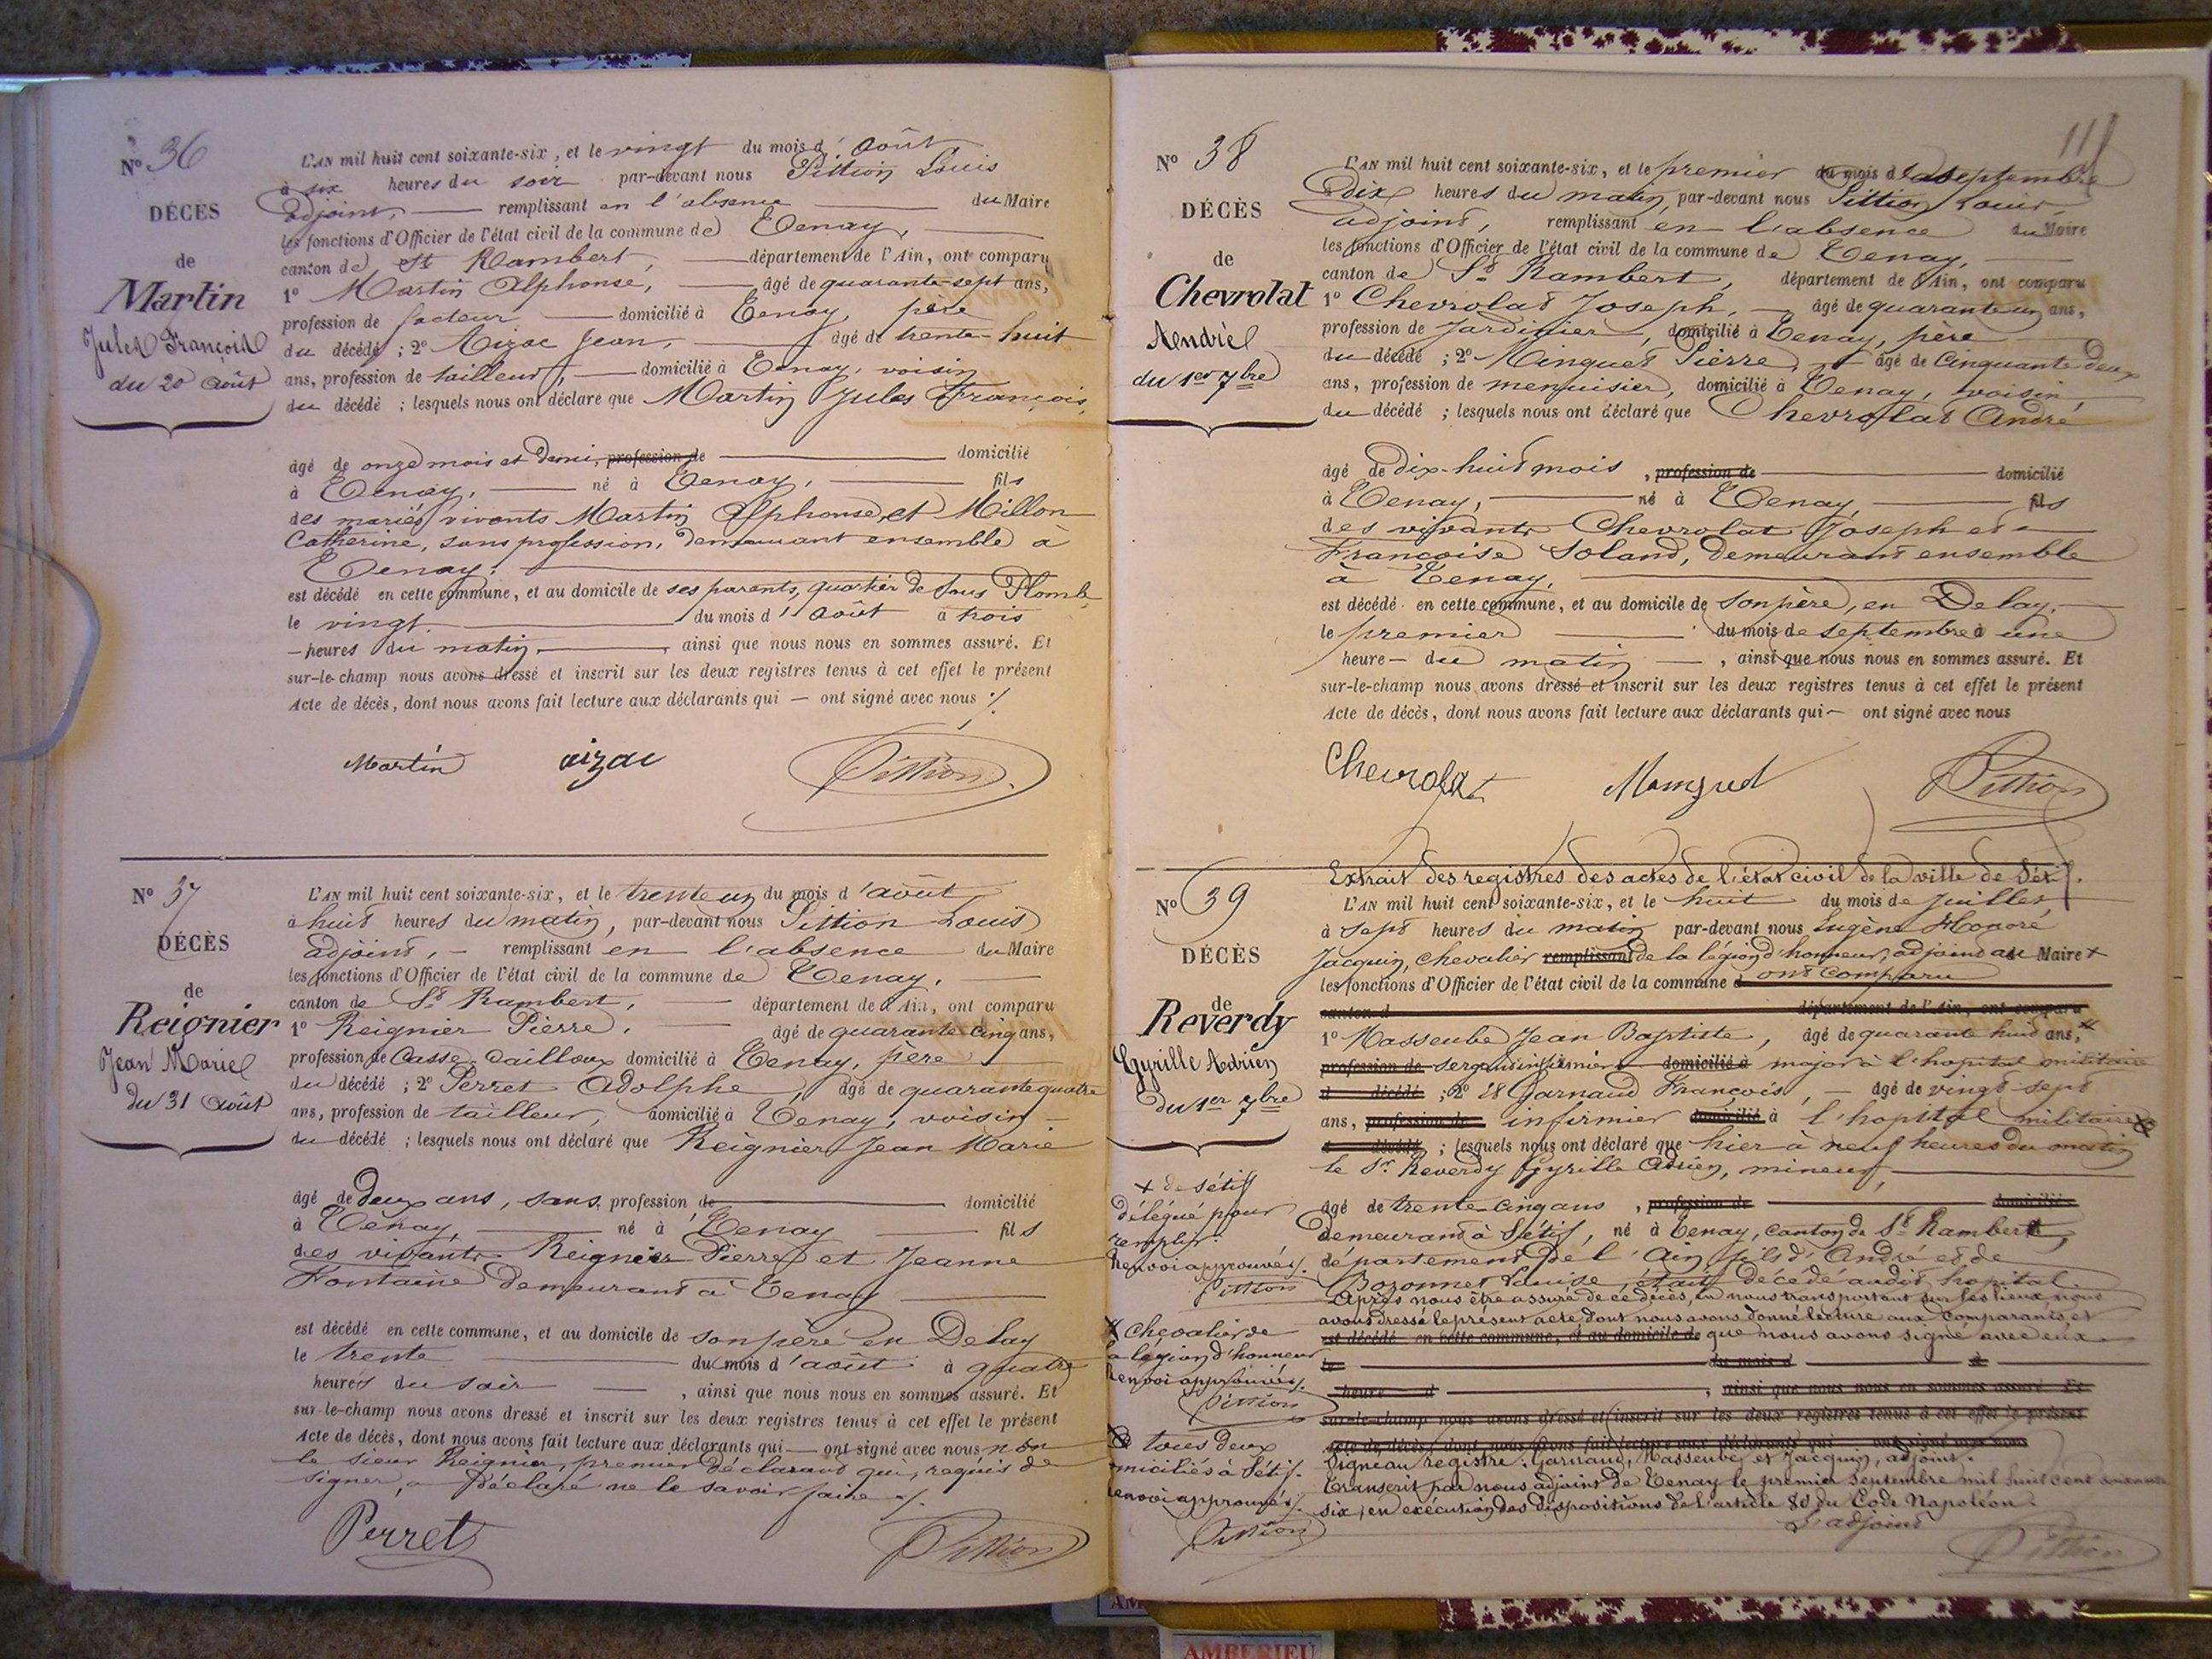 Nº 36
DÉCÈS
de
Martin
Jules François
du 20 août
L'AN mil huit cent soixante-six, et le vingt du mois d'août
à six heures du soir par-devant nous Pittion Louis
adjoint, remplissant en l'absence du Maire
les fonctions d'Officier de l'état civil de la commune de Tenay,
canton de St Rambert, département de l'Ain, ont comparu
1º Martin Alphonse, âgé de quarante-sept ans,
profession de facteur domicilié à Tenay, père
du décédé ; 2º Aizac Jean, âgé de trente-huit
ans, profession de tailleur, domicilié à Tenay, voisin
du décédé ; lesquels nous ont déclaré que Martin Jules François,
âgé de onze mois et demi, profession de domicilié
à Tenay, né à Tenay, fils
des mariés vivants Martin Alphonse, et Millon
Catherine, sans profession, demeurant ensemble à
Tenay,
est décédé en cette commune, et au domicile de ses parents, quartier de sous Plomb
le vingt du mois d'août à trois
heures du matin, ainsi que nous nous en sommes assuré. Et
sur-le-champ nous avons dressé et inscrit sur les deux registres tenus à cet effet le présent
Acte de décès, dont nous avons fait lecture aux déclarants qui — ont signé avec nous ./.
Martin aizac Pittion
Nº 37
DÉCÈS
de
Reignier
Jean Marie
du 31 août
L'AN mil huit cent soixante-six, et le trente un du mois d'août
à huit heures du matin, par-devant nous Pittion Louis
adjoint, - remplissant en l'absence du Maire
les fonctions d'Officier de l'état civil de la commune de Tenay,
canton de St Rambert, département de l'Ain, ont comparu
1º Reignier Pierre, âgé de quarante-cinq ans,
profession de Casse Cailloux domicilié à Tenay, père
du décédé ; 2º Perret Adolphe, âgé de quarante quatre
ans, profession de tailleur, domicilié à Tenay, voisin
du décédé ; lesquels nous ont déclaré que Reignier Jean Marie
âgé de deux ans, sans, profession de domicilié
à Tenay, né à Tenay fils
des vivants Reignier Pierre et Jeanne
Fontaine demeurant à Tenay
est décédé en cette commune, et au domicile de son père en Delay
le trente du mois d'août à quatre
heures du soir, ainsi que nous nous en sommes assuré. Et
sur-le-champ nous avons dressé et inscrit sur les deux registres tenus à cet effet le présent
Acte de décès, dont nous avons fait lecture aux déclarants qui — ont signé avec nous non
le sieur Reignier, premier déclarant qui, requis de
signer, a déclaré ne le savoir faire ./.
Perret Pittion
111
Nº 38
DÉCÈS
de
Chevrolat
André
du 1er 7bre
L'AN mil huit cent soixante-six, et le premier du mois de septembre
à dix heures du matin, par-devant nous Pittion Louis
adjoint, remplissant en l'absence du Maire
les fonctions d'Officier de l'état civil de la commune de Tenay,
canton de St Rambert, département de l'Ain, ont comparu
1º Chevrolat Joseph, âgé de quarante un ans,
profession de Jardinier, domicilié à Tenay, père
du décédé ; 2º Minguet Pierre, âgé de Cinquante deux
ans, profession de menuisier, domicilié à Tenay, voisin,
du décédé ; lesquels nous ont déclaré que Chevrolat André
âgé de dix-huit mois, profession de domicilié
à Tenay, né à Tenay, fils
des vivants Chevrolat Joseph et
Françoise Soland, demeurant ensemble
à Tenay,
est décédé en cette commune, et au domicile de son père, en Delay,
le premier du mois de septembre à une
heure — du matin —, ainsi que nous nous en sommes assuré. Et
sur-le-champ nous avons dressé et inscrit sur les deux registres tenus à cet effet le présent
Acte de décès, dont nous avons fait lecture aux déclarants qui — ont signé avec nous
Chevrolat Pittion
Extrait des registres des actes de l'état civil de la ville de Sétif.
Nº 39
DÉCÈS
de
Reverdy
Cyrille Adrien
du 1er 7bre
L'AN mil huit cent soixante-six, et le huit du mois de juillet
à sept heures du matin par-devant nous Eugène Honoré
Jacquin, chevalier remplissant de la légion d'honneur, adjoint au Maire +
les fonctions d'Officier de l'état civil de la commune d ont comparu
canton d département de l'Ain, ont comparu
1º Masseube Jean Baptiste, âgé de quarante huit ans,
profession de sergent infirmier domicilié à major à l'hopital militaire
d décédé ; 2º Garnaud François, — âgé de vingt-sept
ans, profession de infirmier domicilié à l'hopital militaire
d décédé ; lesquels nous ont déclaré que hier à neuf heures du matin
le Sr Reverdy Cyrille Adrien, mineur,
âgé de trente-cinq ans, profession de domicilié
demeurant à Sétif, né à Tenay, canton de St Rambert,
département de l'Ain, fils d'André et de
Bozonnet Louise, était décédé audit hopital.
Après nous être assuré de ce décès, en nous transportant sur les lieux nous
avons dressé le présent acte, dont nous avons donné lecture aux comparants, et
est décédé en cette commune, et au domicile de que nous avons signé avec eux
le du mois d à
heure d, ainsi que nous nous en sommes assuré. Et
sur-le-champ nous avons dressé et inscrit sur les deux registres tenus à cet effet le présent
acte de décès, dont nous avons fait lecture aux déclarants qui ont signé avec nous
Signé au registre : Garnaud, Masseube et Jacquin, adjoint.
Transcrit par nous adjoint de Tenay le premier septembre mil huit cent soixante
six, en exécution des dispositions de l'article 80 du Code Napoléon.
L'adjoint
Pittion
+ de Sétif
délégué pour
remplir.
Renvoi approuvé ./.
Pittion
chevalier de
la légion d'honneur
Renvoi approuvé ./.
Pittion
tous deux
domiciliés à Sétif.
Renvoi approuvé ./.
Pittion
AM
AMBERIEU